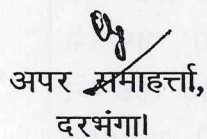 अपर समाहर्त्ता,
दरभंगा।